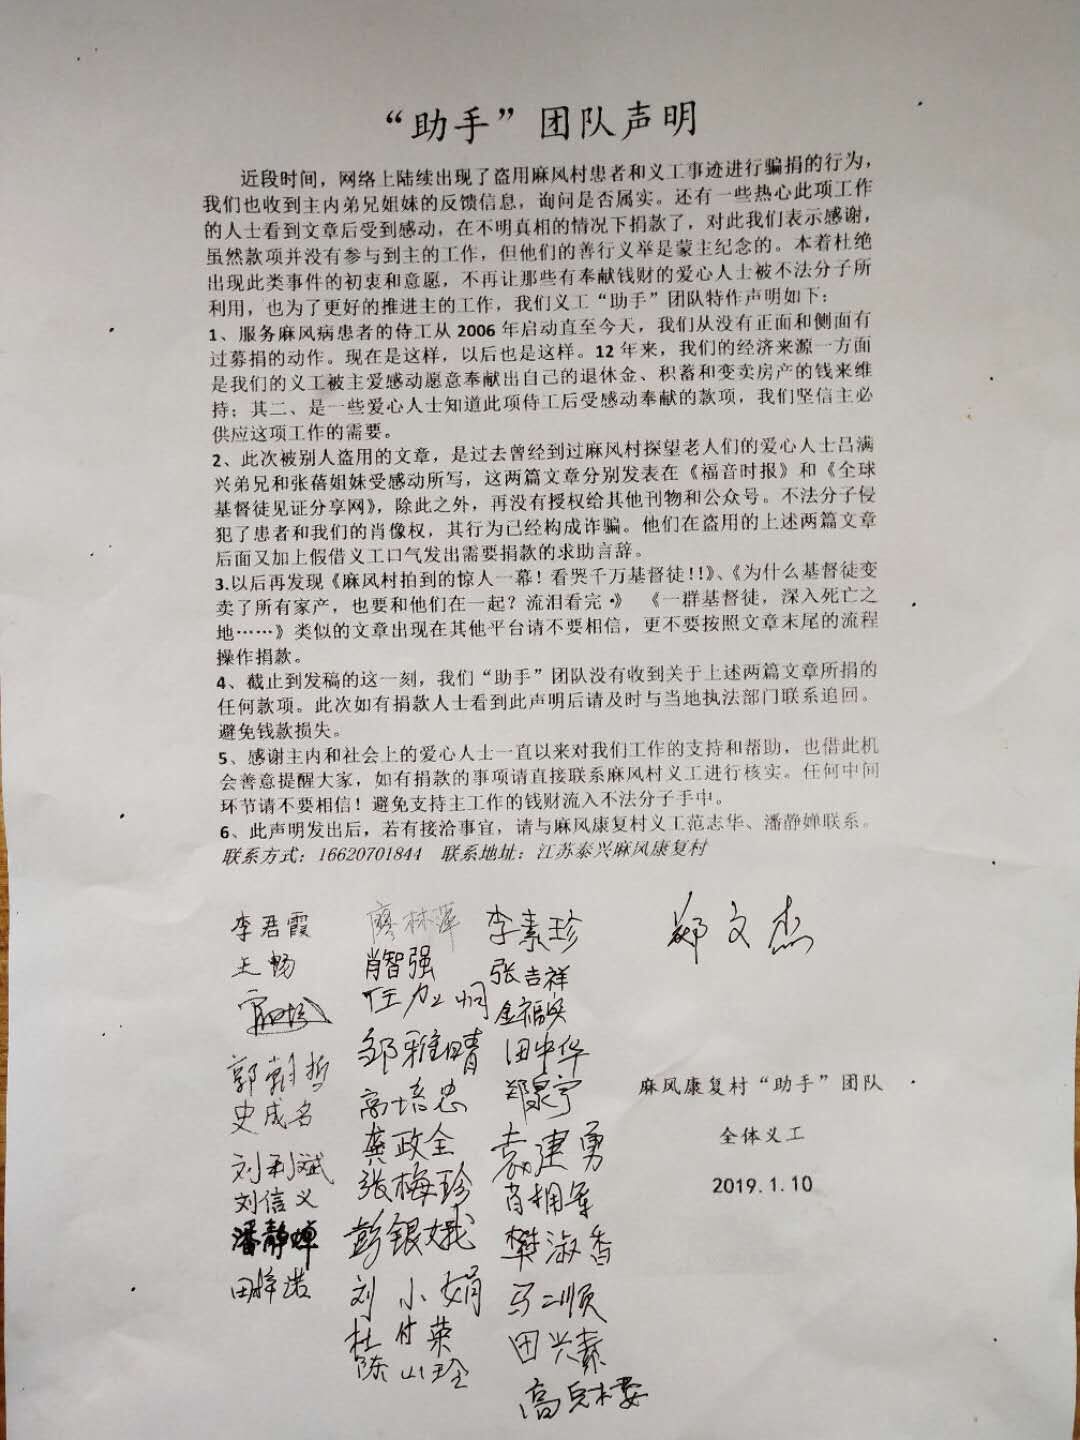 “助手”团队声明
近段时间，网络上陆续出现了盗用麻风村患者和义工事迹进行骗捐的行为，
我们也收到主内弟兄姐妹的反馈信息，询问是否属实。还有一些热心此项工作
的人士看到文章后受到感动，在不明真相的情况下捐款了，对此我们表示感谢，
虽然款项并没有参与到主的工作，但他们的善行义举是蒙主纪念的。本着杜绝
出现此类事件的初衷和意愿，不再让那些有奉献钱财的爱心人士被不法分子所
利用，也为了更好的推进主的工作，我们义工“助手”团队特作声明如下：
1、服务麻风病患者的侍工从 2006 年启动直至今天，我们从没有正面和侧面有
过募捐的动作。现在是这样，以后也是这样。12 年来，我们的经济来源一方面
是我们的义工被主爱感动愿意奉献出自己的退休金、积蓄和变卖房产的钱来维
持；其二、是一些爱心人士知道此项侍工后受感动奉献的款项，我们坚信主必
供应这项工作的需要。
2、此次被别人盗用的文章，是过去曾经到过麻风村探望老人们的爱心人士吕满
兴弟兄和张蓓姐妹受感动所写，这两篇文章分别发表在《福音时报》和《全球
基督徒见证分享网》，除此之外，再没有授权给其他刊物和公众号。不法分子侵
犯了患者和我们的肖像权，其行为已经构成诈骗。他们在盗用的上述两篇文章
后面又加上假借义工口气发出需要捐款的求助言辞。
3.以后再发现《麻风村拍到的惊人一幕！看哭千万基督徒!!》、《为什么基督徒变
卖了所有家产，也要和他们在一起？流泪看完·》 《一群基督徒，深入死亡之
地……》类似的文章出现在其他平台请不要相信，更不要按照文章末尾的流程
操作捐款。
4、截止到发稿的这一刻，我们“助手”团队没有收到关于上述两篇文章所捐的
任何款项。此次如有捐款人士看到此声明后请及时与当地执法部门联系追回。
避免钱款损失。
5、感谢主内和社会上的爱心人士一直以来对我们工作的支持和帮助，也借此机
会善意提醒大家，如有捐款的事项请直接联系麻风村义工进行核实。任何中间
环节请不要相信！避免支持主工作的钱财流入不法分子手中。
6、此声明发出后，若有接洽事宜，请与麻风康复村义工范志华、潘静婵联系。
联系方式：16620701844 联系地址：江苏泰兴麻风康复村
李君霞 廖林萍 李素珍 郑文杰
王畅 肖智强 张吉祥
邹雅晴 田中华
郭朝哲 高培忠 郑泉宁
史成名 龚政全 袁建勇
刘利斌 张梅珍 肖拥军
刘信义 彭银娥 樊淑香
潘静婵 刘小娟 马二顺
杜付荣 田兴素
麻风康复村“助手”团队
全体义工
2019.1.10